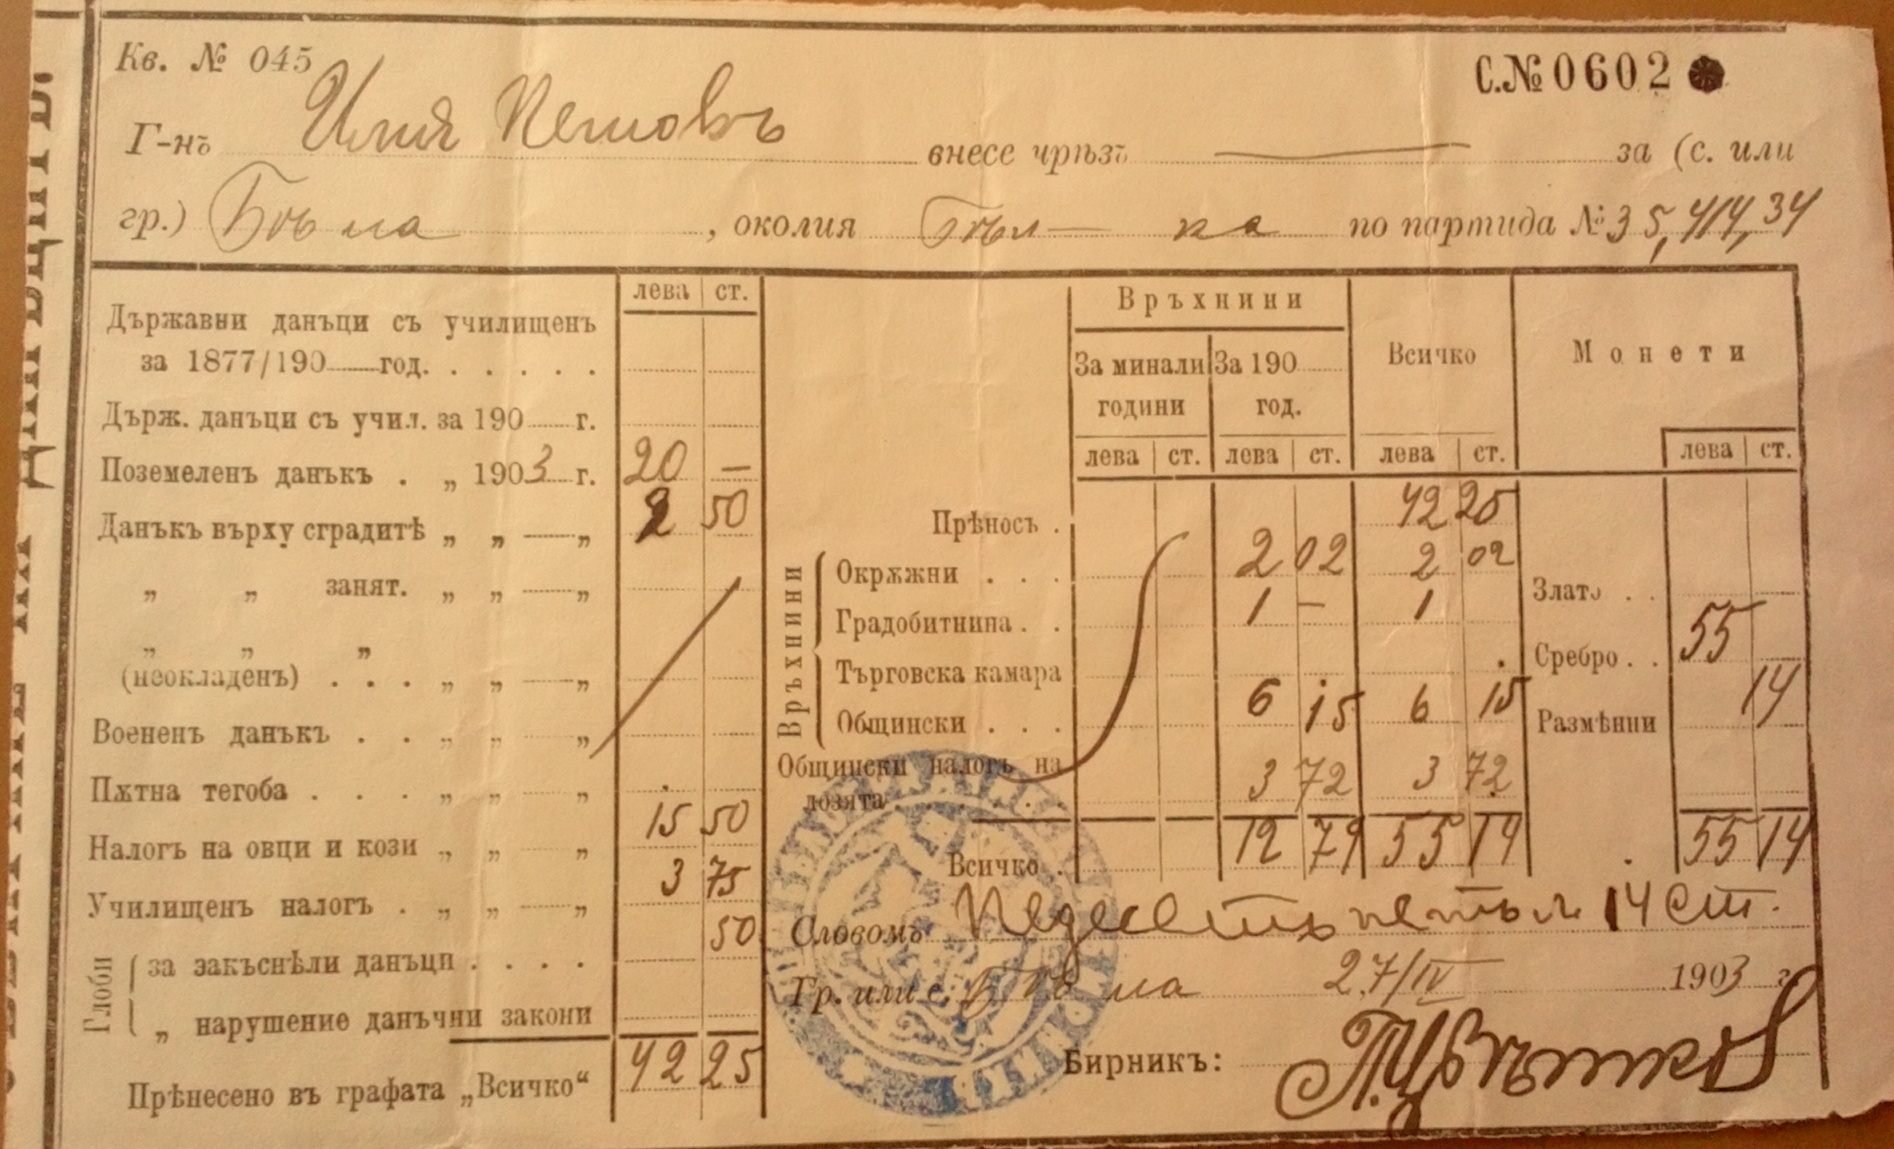 Кв. № 045
С.№ 0602
Г-нъ Илия Петовъ внесе чрѣзъ за (с. или
гр.) Бѣла, околия Бѣл— ка по партида № 35,414,34
лева ст.
Държавни данъци съ училищенъ
за 1877/190 год. . . . . . .
Държ. данъци съ учил. за 190 г.
Поземеленъ данъкъ . „ 1903 г. 20 —
Данъкъ върху сградитѣ „ „ — „ 2 50
„ „ занят. „ „ — „
„ „ „
(неокладенъ) . . . „ „ — „
Воененъ данъкъ . . „ „ „
Пѫтна тегоба . . . „ „ — „
Налогъ на овци и кози „ „ — „ 15 50
Училищенъ налогъ . „ „ — „ 3 75
Глоби
за закъснѣли данъци . . . . 50
„ нарушение данъчни закони
Прѣнесено въ графата „Всичко“ 42 25
Връхнини
Всичко
Монети
За минали години
За 190 год.
лева ст. лева ст. лева ст. лева ст.
Прѣносъ . 42 25
Връхнини
Окрѫжни . . . 2 02 2 02
Злато . .
Градобитнина . . 1 — 1
Сребро . . 55
Търговска камара
Общински . . . 6 15 6 15
Размѣнни 14
Общински налогъ на
лозята . . . 3 72 3 72
Всичко . 12 79 55 14 55 14
Словомъ Педесетъ петь л. 14 ст.
Гр. или с. Бѣла 27/IV 1903 г.
Бирникъ: